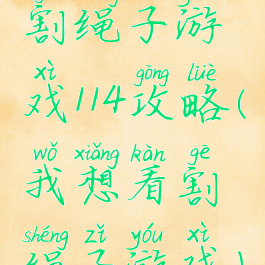 割绳子游
xì gōng lüè
戏114攻略(
wǒ xiǎng kàn gē
我想看割
shéng zǐ yóu xì
绳子游戏)